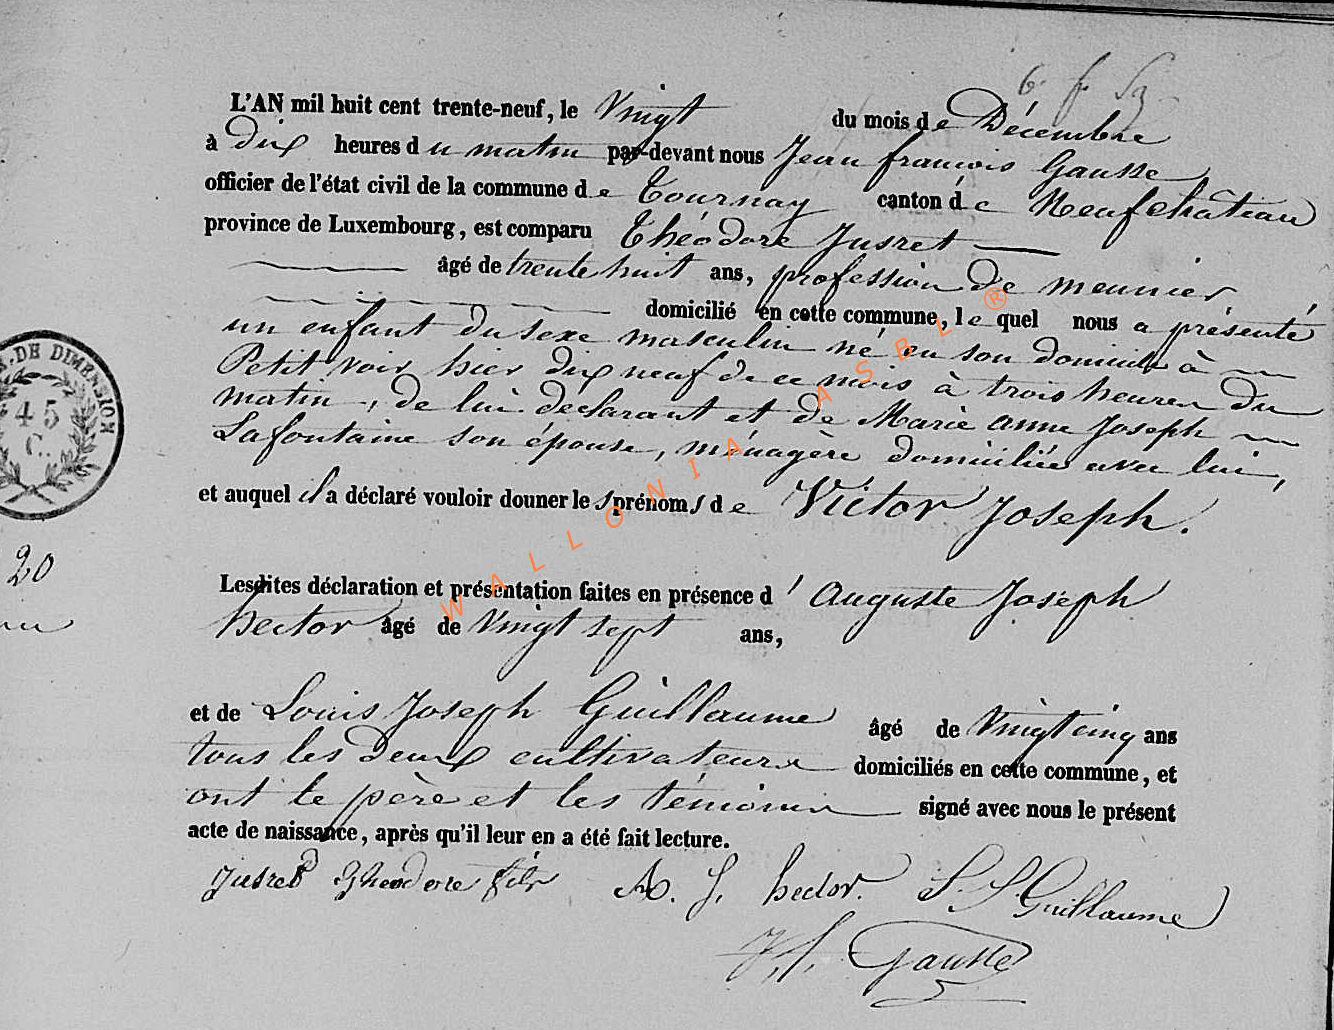 L'AN mil huit cent trente-neuf, le Vingt du mois de Décembre
à dix heures du matin par-devant nous Jean françois Gausse
officier de l'état civil de la commune de Tournay canton de Neufchâteau
province de Luxembourg, est comparu Théodore Jusret
âgé de trente huit ans, profession de meunier
domicilié en cette commune, lequel nous a présenté
un enfant du sexe masculin né en son domicile à
Petit voir hier dix neuf de ce mois à trois heures du
matin, de lui déclarant et de Marie anne Joseph
Lafontaine son épouse, ménagère domiciliée avec lui,
et auquel il a déclaré vouloir donner les prénoms de Victor Joseph.
Lesdites déclaration et présentation faites en présence d'Auguste Joseph
hector âgé de Vingt sept ans,
et de Louis Joseph Guillaume âgé de Vingt cinq ans
tous les deux cultivateurs domiciliés en cette commune, et
ont le père et les témoins signé avec nous le présent
acte de naissance, après qu'il leur en a été fait lecture.
Jusret Theodore fils A. J. hector. L. J. Guillaume
J. f. Gausse
DE DIMENSION
45
C.
20
WALLONIA ASBL ®